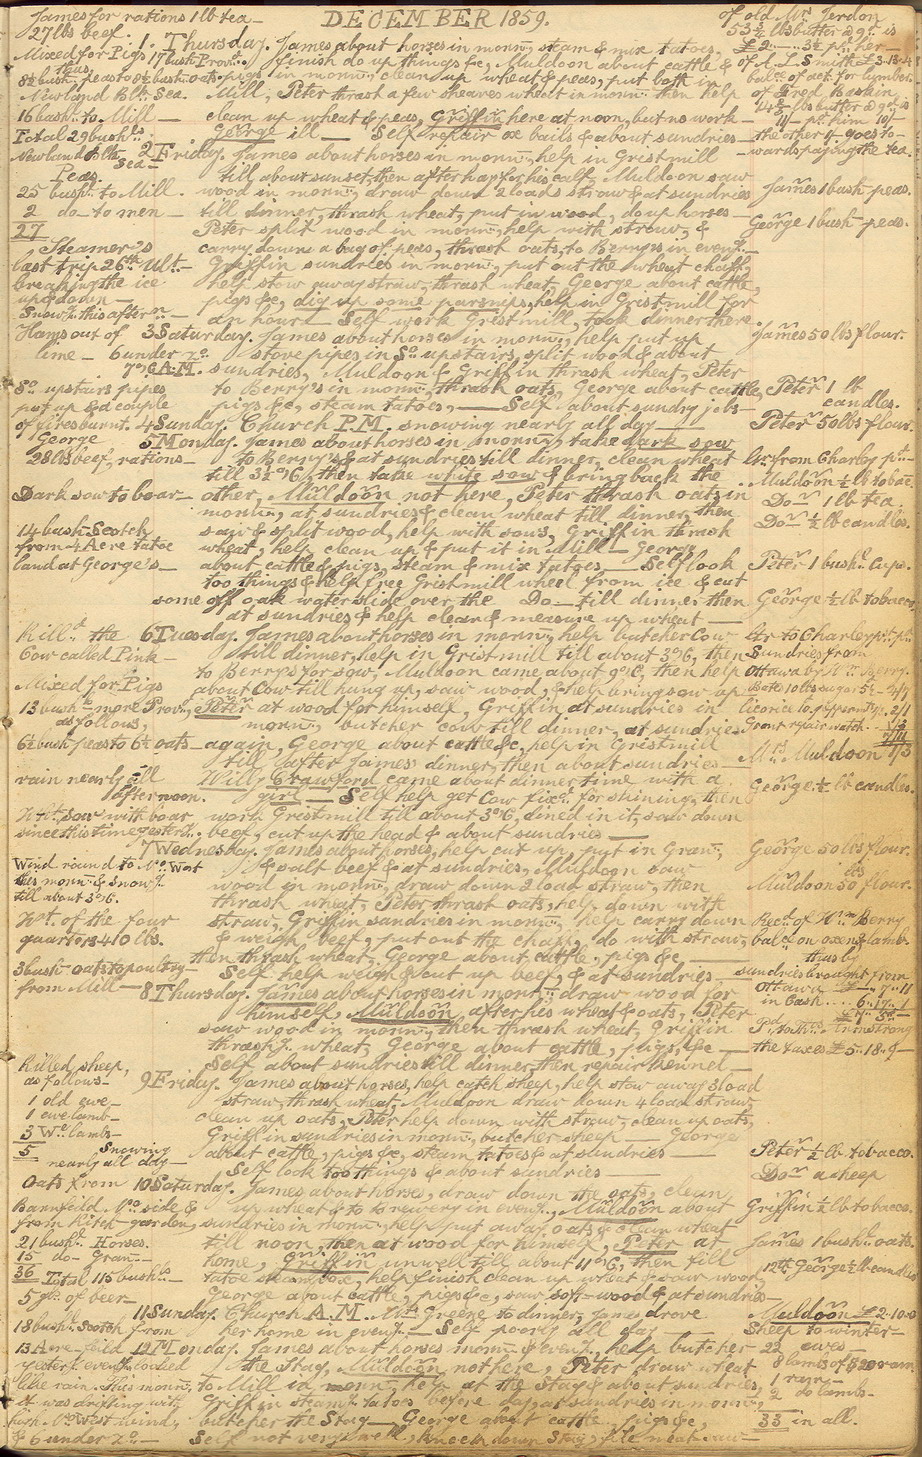 DECEMBER 1859.
James for rations 1 lb tea
27 lbs beef.
1. Thursday. James about horses in morn^g, steam & mix tatoes,
finish do up things &c, Muldoon about cattle &
pigs in morn^g, clean up wheat & peas, put both in
Mill, Peter thrash a few sheaves wheat in morn^g then help
clean up wheat & peas, Griffin here at noon, but no work
George ill — Self repair ox bails & about sundries
Mixed for Pigs 17 bush. Prov.
8½ bush. peas to 8½ bush. oats
Newland Blk Sea
16 bush. to Mill
Total 29 bush^ls
of old M^r Jerdon
53½ lbs butter @ 9^d is
£2
of A. L. Smith £3
balce of act. for lumber
of Fred Baskin
the other 11/- goes to-
wards paying the tea.
2 Friday. James about horses in morn^g, help in Gristmill
till about sunset, then after hay for his calf, Muldoon saw
wood in morn^g, draw down 2 loads straw & at sundries
till dinner, thrash wheat, put in wood, do up horses
Peter split wood in morn^g, help with straw, &
carry down a bag of peas, thrash oats, to Berry's in even^g
Griffin sundries in morn^g, put out the wheat chaff,
help stow away straw, thrash wheat, George about cattle,
pigs &c, dig up some parsneps, help in Gristmill for
an hour — Self work Gristmill, took dinner there
Newland Blk Sea
Peas.
25 bush^ls to Mill.
2 do to men
27
Steamer's
last trip 26th Ult.
breaking the ice
up & down
Snow^g this aftern
James 1 bush peas.
George 1 bush peas.
3 Saturday. James about horses in morn^g, help put up
stove pipes in S^o upstairs, split wood & about
sundries, Muldoon & Griffin thrash wheat, Peter
to Berry's in morn^g, thrash oats, George about cattle,
pigs &c, steam tatoes, — Self about sundry jobs
Hams out of
lime — 6 under z^o
7 o'C A.M.
S^o upstairs pipes
put up & a couple
of fires burnt.
James 50 lbs flour.
Peter 1 lb
candles.
4 Sunday. Church P.M. snowing nearly all day
Peter 50 lbs flour.
5 Monday. James about horses in morn^g, take dark sow
to Berry's & at sundries till dinner, clean wheat
till 3½ o'C, then take white sow & bring back the
other, Muldoon not here, Peter thrash oats in
morn^g, at sundries & clean wheat till dinner, then
saw & split wood, help with sows, Griffin thrash
wheat, help clean up & put it in Mill — George
about cattle & pigs, steam & mix tatoes, — Self look
too things & help free Gristmill wheel from ice & cut
some off oak waterslide over the Do — till dinner then
at sundries & help clean & measure up wheat
George
28 lbs beef, rations
Dark sow to boar
14 bush Scotch
from 4 Acre tatoe
land at George's
ltr from Charley p^t
Muldoon ½ lb tobac.
Do 1 lb tea.
Do ½ lb candles.
Peter 1 bush^l
George ½ lb tobacco.
6 Tuesday. James about horses in morn^g, help butcher Cow
till dinner, help in Gristmill till about 3 o'C, then
to Berry's for sow, Muldoon came about 9 o'C, then help
about Cow till hung up, saw wood, & help bring sow up
Peter at wood for himself, Griffin at sundries in
morn^g, butcher cow till dinner, at sundries
again, George about cattle &c, help in Gristmill
till after James' dinner, then about sundries
Willy Crawford came about dinner time with a
girl — Self help get Cow fix^d for skining, then
work Gristmill till about 3 o'C, dined in it, saw down
beef, cut up the head & about sundries
Kill^d the
Cow called Pink
Mixed for Pigs
13 bush more Prov.
as follows,
6½ bush peas to 6½ oats
rain nearly all
afternoon.
Wht. sow with boar
since this time yesterd^y.
ltr to Charley
Sundries from
Ottawa by W^m Berry.
Grant repair watch
M^rs Muldoon 1/3
George ½ lb candles.
7 Wednesday. James about horses, help cut up, put in Gran^y,
& salt beef & at sundries, Muldoon saw
wood in morn^g, draw down 2 load straw, then
thrash wheat, Peter thrash oats, help down with
straw, Griffin sundries in morn^g, help carry down
& weigh beef, put out the chaff, do with straw,
then thrash wheat, George about cattle, pigs &c,
Self help weigh & cut up beef, & at sundries
Wind round to No. West
this morn^g & snow^g
till about 3 o'C.
Wgt. of the four
quarters 410 lbs.
3 bush oats to poultry
from Mill
George 50 lbs flour.
Muldoon 50 lbs flour.
Rec^d of W^m Berry
balce on oxen & lamb
thus by
sundries brought from
Ottawa £ — 7 . 11
in Cash . . . 6 . 17 . 1
8 Thursday. James about horses in morn^g, draw wood for
himself, Muldoon after his wheat & oats, Peter
saw wood in morn^g, then thrash wheat, Griffin
thrash^g wheat, George about cattle, pigs, &c
Self about sundries till dinner, then repair kennel
P^d to M^r Armstrong
the taxes £5.18.9
9 Friday. James about horses, help catch sheep, help stow away 3 load
straw, thrash wheat, Muldoon draw down 4 load straw,
clean up oats, Peter help down with straw, clean up oats,
Griffin sundries in morn^g, butcher sheep — George
about cattle, pigs &c, steam tatoes & at sundries
Self look too things & about sundries
Killed sheep,
as follows
1 old ewe
1 ewe lamb
3 We. lambs
5
Snowing
nearly all day
Peter ½ lb tobacco.
Do a sheep
10 Saturday. James about horses, draw down the oats, clean
up wheat & to brewery in even^g, Muldoon about
sundries in morn^g, help put away oats & clean wheat
till noon, then at wood for himself, Peter at
home, Griffin unwell till about 11 o'C, then fill
tatoe steam box, help finish clean up wheat & saw wood,
George about cattle, pigs &c, saw soft wood & at sundries
Oats from
Barnfield No. side &
from Kitch garden,
21 bush^ls Horses.
15 do Gran
36 Total 115 bush^ls
5 g^ls of beer
Griffin ½ lb tobacco.
James 1 bush^l oats.
12th George ½ lb candles
11 Sunday. Church A.M. M^rs Greene to dinner, James drove
her home in even^g — Self poorly all day
12 Monday. James about horses morn^g & even^g, help butcher
the Stag, Muldoon not here, Peter draw wheat
to Mill in morn^g, help at the Stag & about sundries,
Griffin steam^g tatoes before day, at sundries in morn^g,
butcher the Stag — George about cattle, pigs &c,
Self not very well, knock down Stag, file meat saw
18 bush^ls Scotch from
13 Acre field
yesterd^y even^g looked
like rain. This morn^g
it was drifting with
fresh No. West wind,
& 6 under z^o
Muldoon £2.10.0
Sheep to winter
22 ewes
8 lambs of
1 ram
2 do lambs
33 in all.